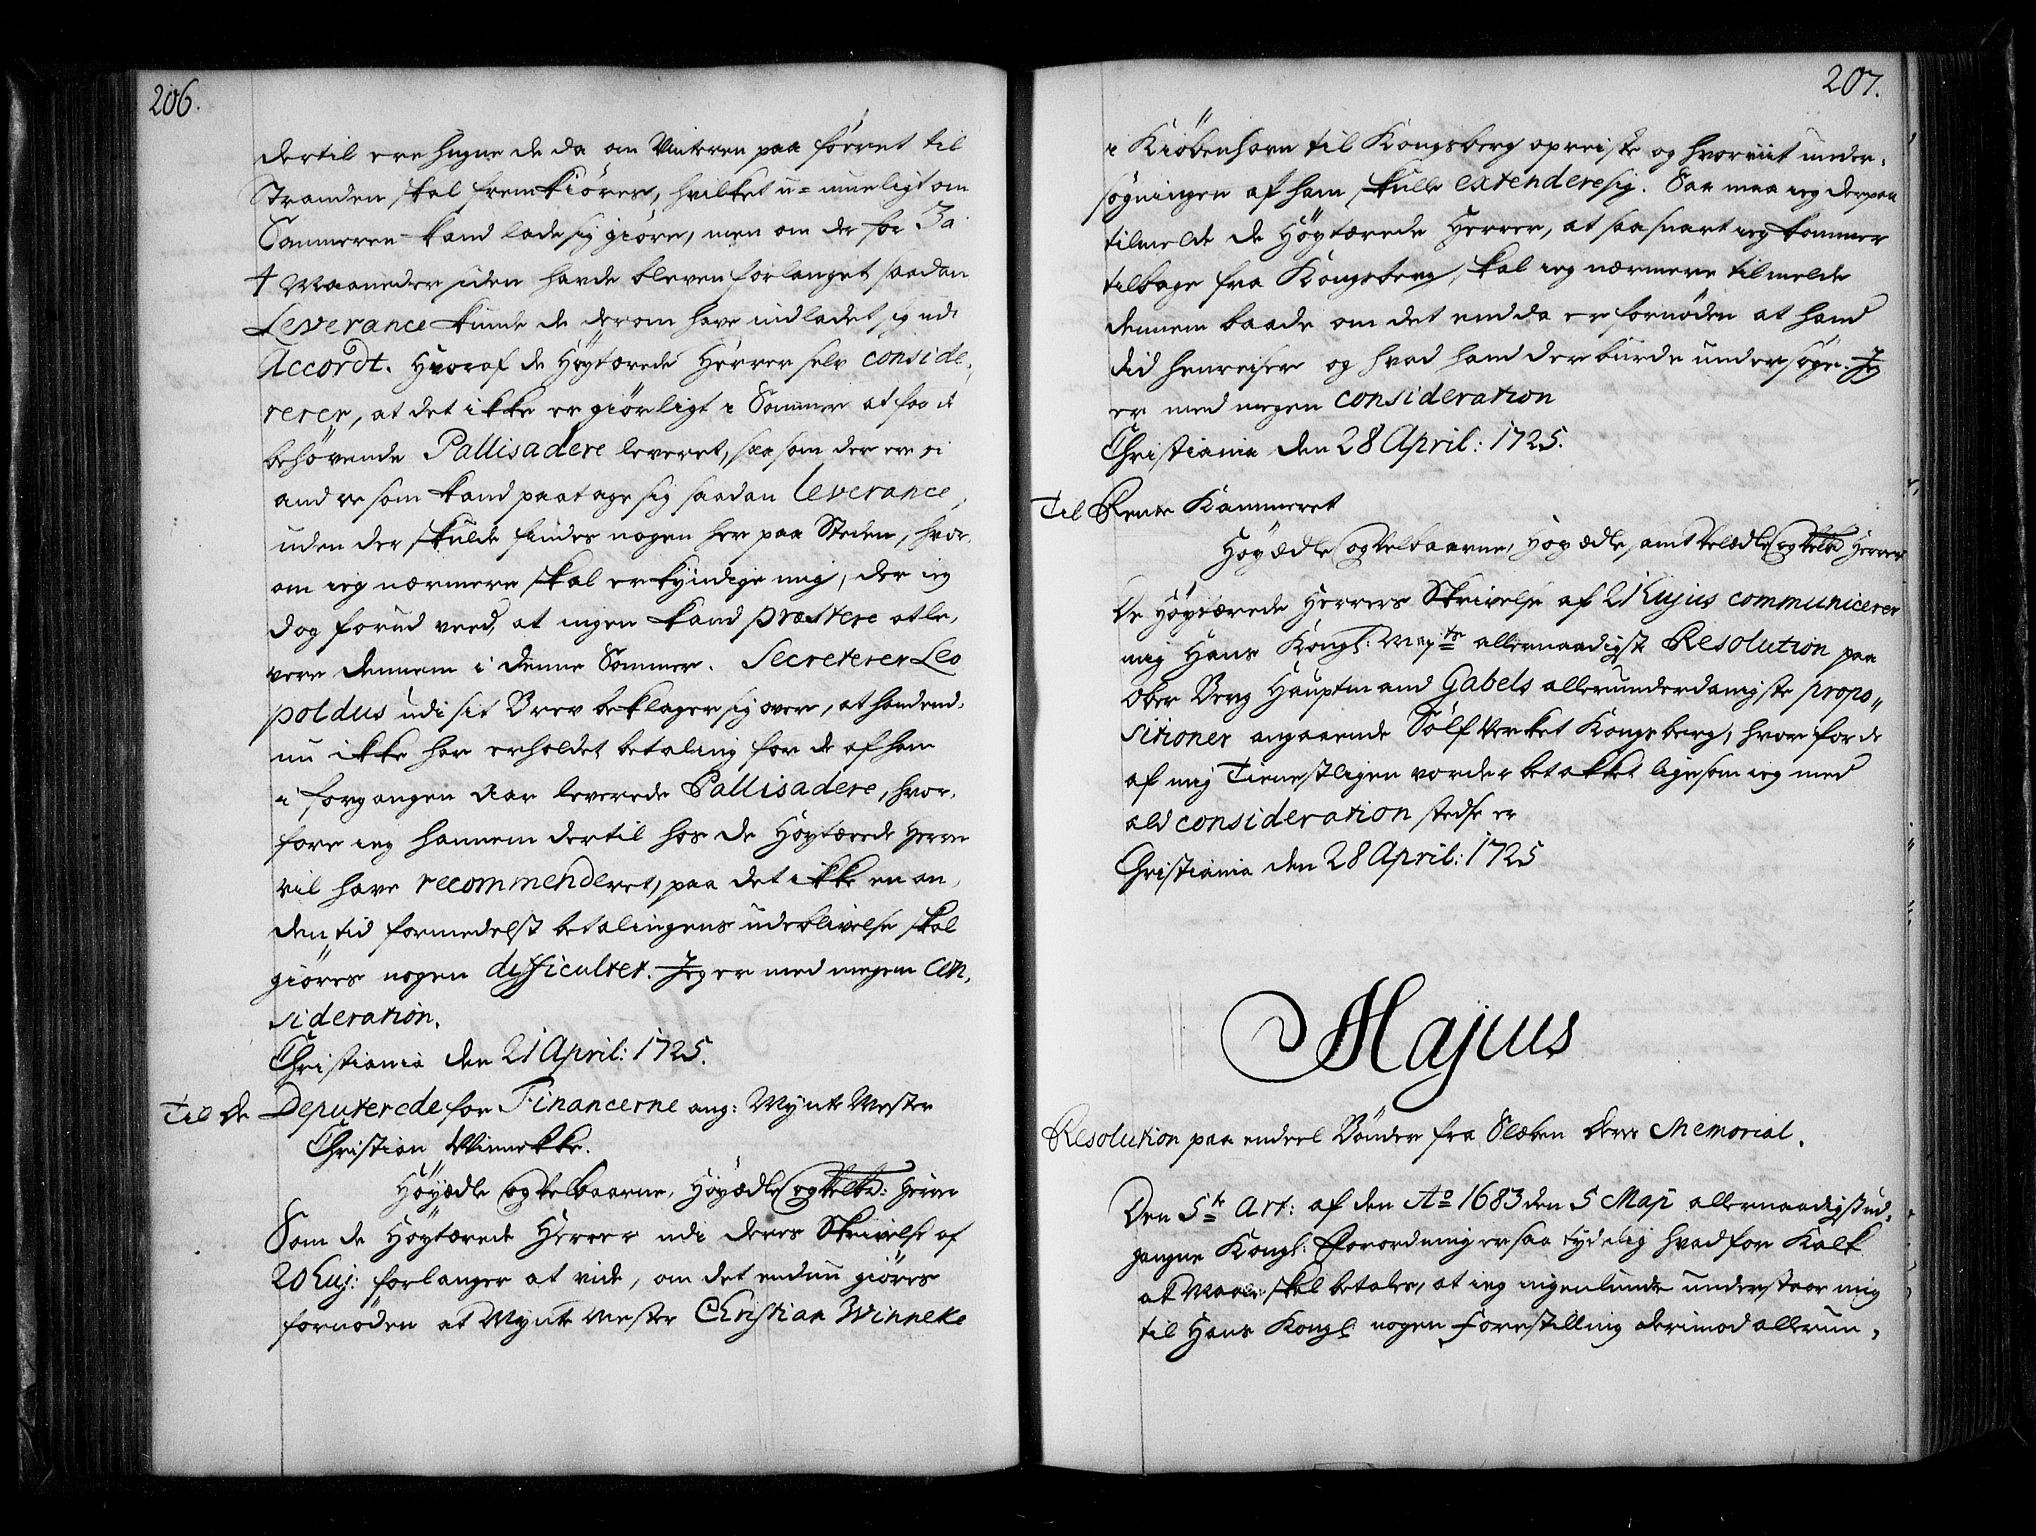 206.
dertil ere hugne de da om Vinteren paa förret til
Stranden skal fremkiöres, hvilket u-mueligt om
Sommeren kand lade sig giöre, men om der for 3 a
4 Maaneder siden havde bleven forlanget saadan
Leverance kunde de derom have indladet sig udi
Accordt. Hvoraf de Höytærede Herrer selv conside,
rerer, at det ikke er giörligt i Sommer at faa de
behövende Pallisadere leveret, saa som der ere ei
andre som kand paatage sig saadan leverance,
uden der skulde findes nogen her paa Steden, hvor,
om ieg nærmere skal erkyndige mig, der ieg
dog forud veed, at ingen kand præstere at le,
vere dennem i denne Sommer. Secreterer Leo
poldus udi sit Brev beklager sig over, at hand end,
nu ikke har erholdet betaling for de af ham
i forgangen Aar leverede Pallisadere, hvor,
fore ieg hannem dertil hos de Höytærede Herrer
vil have recommenderet, paa det ikke en an,
den tid formedelst betalingens udeblivelse skal
giöres nogen difficultet. Jeg er med megen Con,
sideration.
Christiania den 21 April: 1725.
Til de Deputerede for Financerne ang: Mynt Mester
Christian Winnekke.
Höyædle og Velbaarne, Höyædle og Velbr: Herrer
Som de Höytærede Herrer udi deres Skrivelse af
20 huj: forlanger at vide, om det endnu giöres
fornöden at Mynt Mester Christian Winneke
207.
i Kiöbenhavn til Kongsberg opreiste og hvorviit under,
sögningen af ham skulle extendere sig. Saa maa ieg derpaa
tilmelde de Höytærede Herrer, at saa snart ieg kommer
tilbage fra Kongsberg, skal ieg nærmere tilmelde
dennem baade om det endda er fornöden at hand
did henreiser og hvad hand der burde undersöge. Jeg
er med megen Consideration
Christiania den 28 April: 1725.
Til Rente Kammeret
Höyædle og Velbaarne, Höyædle, samt Velædle og Velbr Herrer
De Höytærede Herrers Skrivelse af 21 hujus communicerer
mig Hans Kongl: May:ts allernaadigste Resolution paa
Ober Berg Hauptmand Gabels allerunderdanigste propo,,
sitioner angaaende Sölf Verket Kongsberg, hvorfor de
af mig Tienestligen vorder betakket ligesom ieg med
ald consideration stedse er
Christiania den 28 April: 1725
Majus
Resolution paa endeel Bönder fra Slæben deres Memorial.
Den 5te Art: af den Ao 1683 den 5 Maji allernaadigst ud,
gangne Kongl: Forordning er saa tydelig hvad for Kalk
at Maale skal betales, at ieg ingenlunde understaar mig
til Hans Kongl nogen Forestilling derimod allerun,